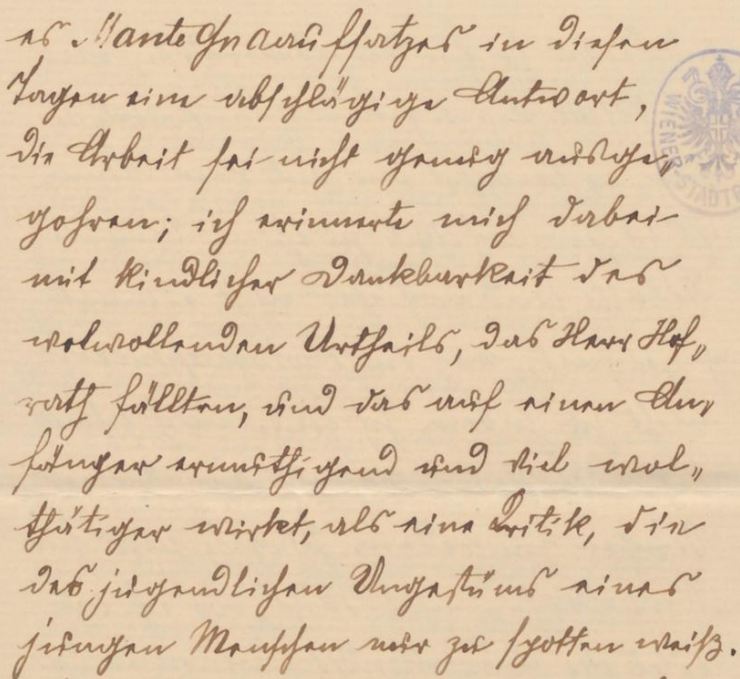 es Mantegnaaufsatzes in diesen
Tagen eine abschlägige Antwort,
die Arbeit sei nicht genug ausge-
gohren; ich erinnerte mich dabei
mit kindlicher Dankbarkeit des
wolwollenden Urtheils, das Herr Hof-
rath fällten, und das auf einen An-
fänger ermuthigend und viel wol-
thätiger wirkt, als eine Kritik, die
des jugendlichen Ungestüms eines
jungen Menschen nur zu spotten weiß.
WIENER STADTB